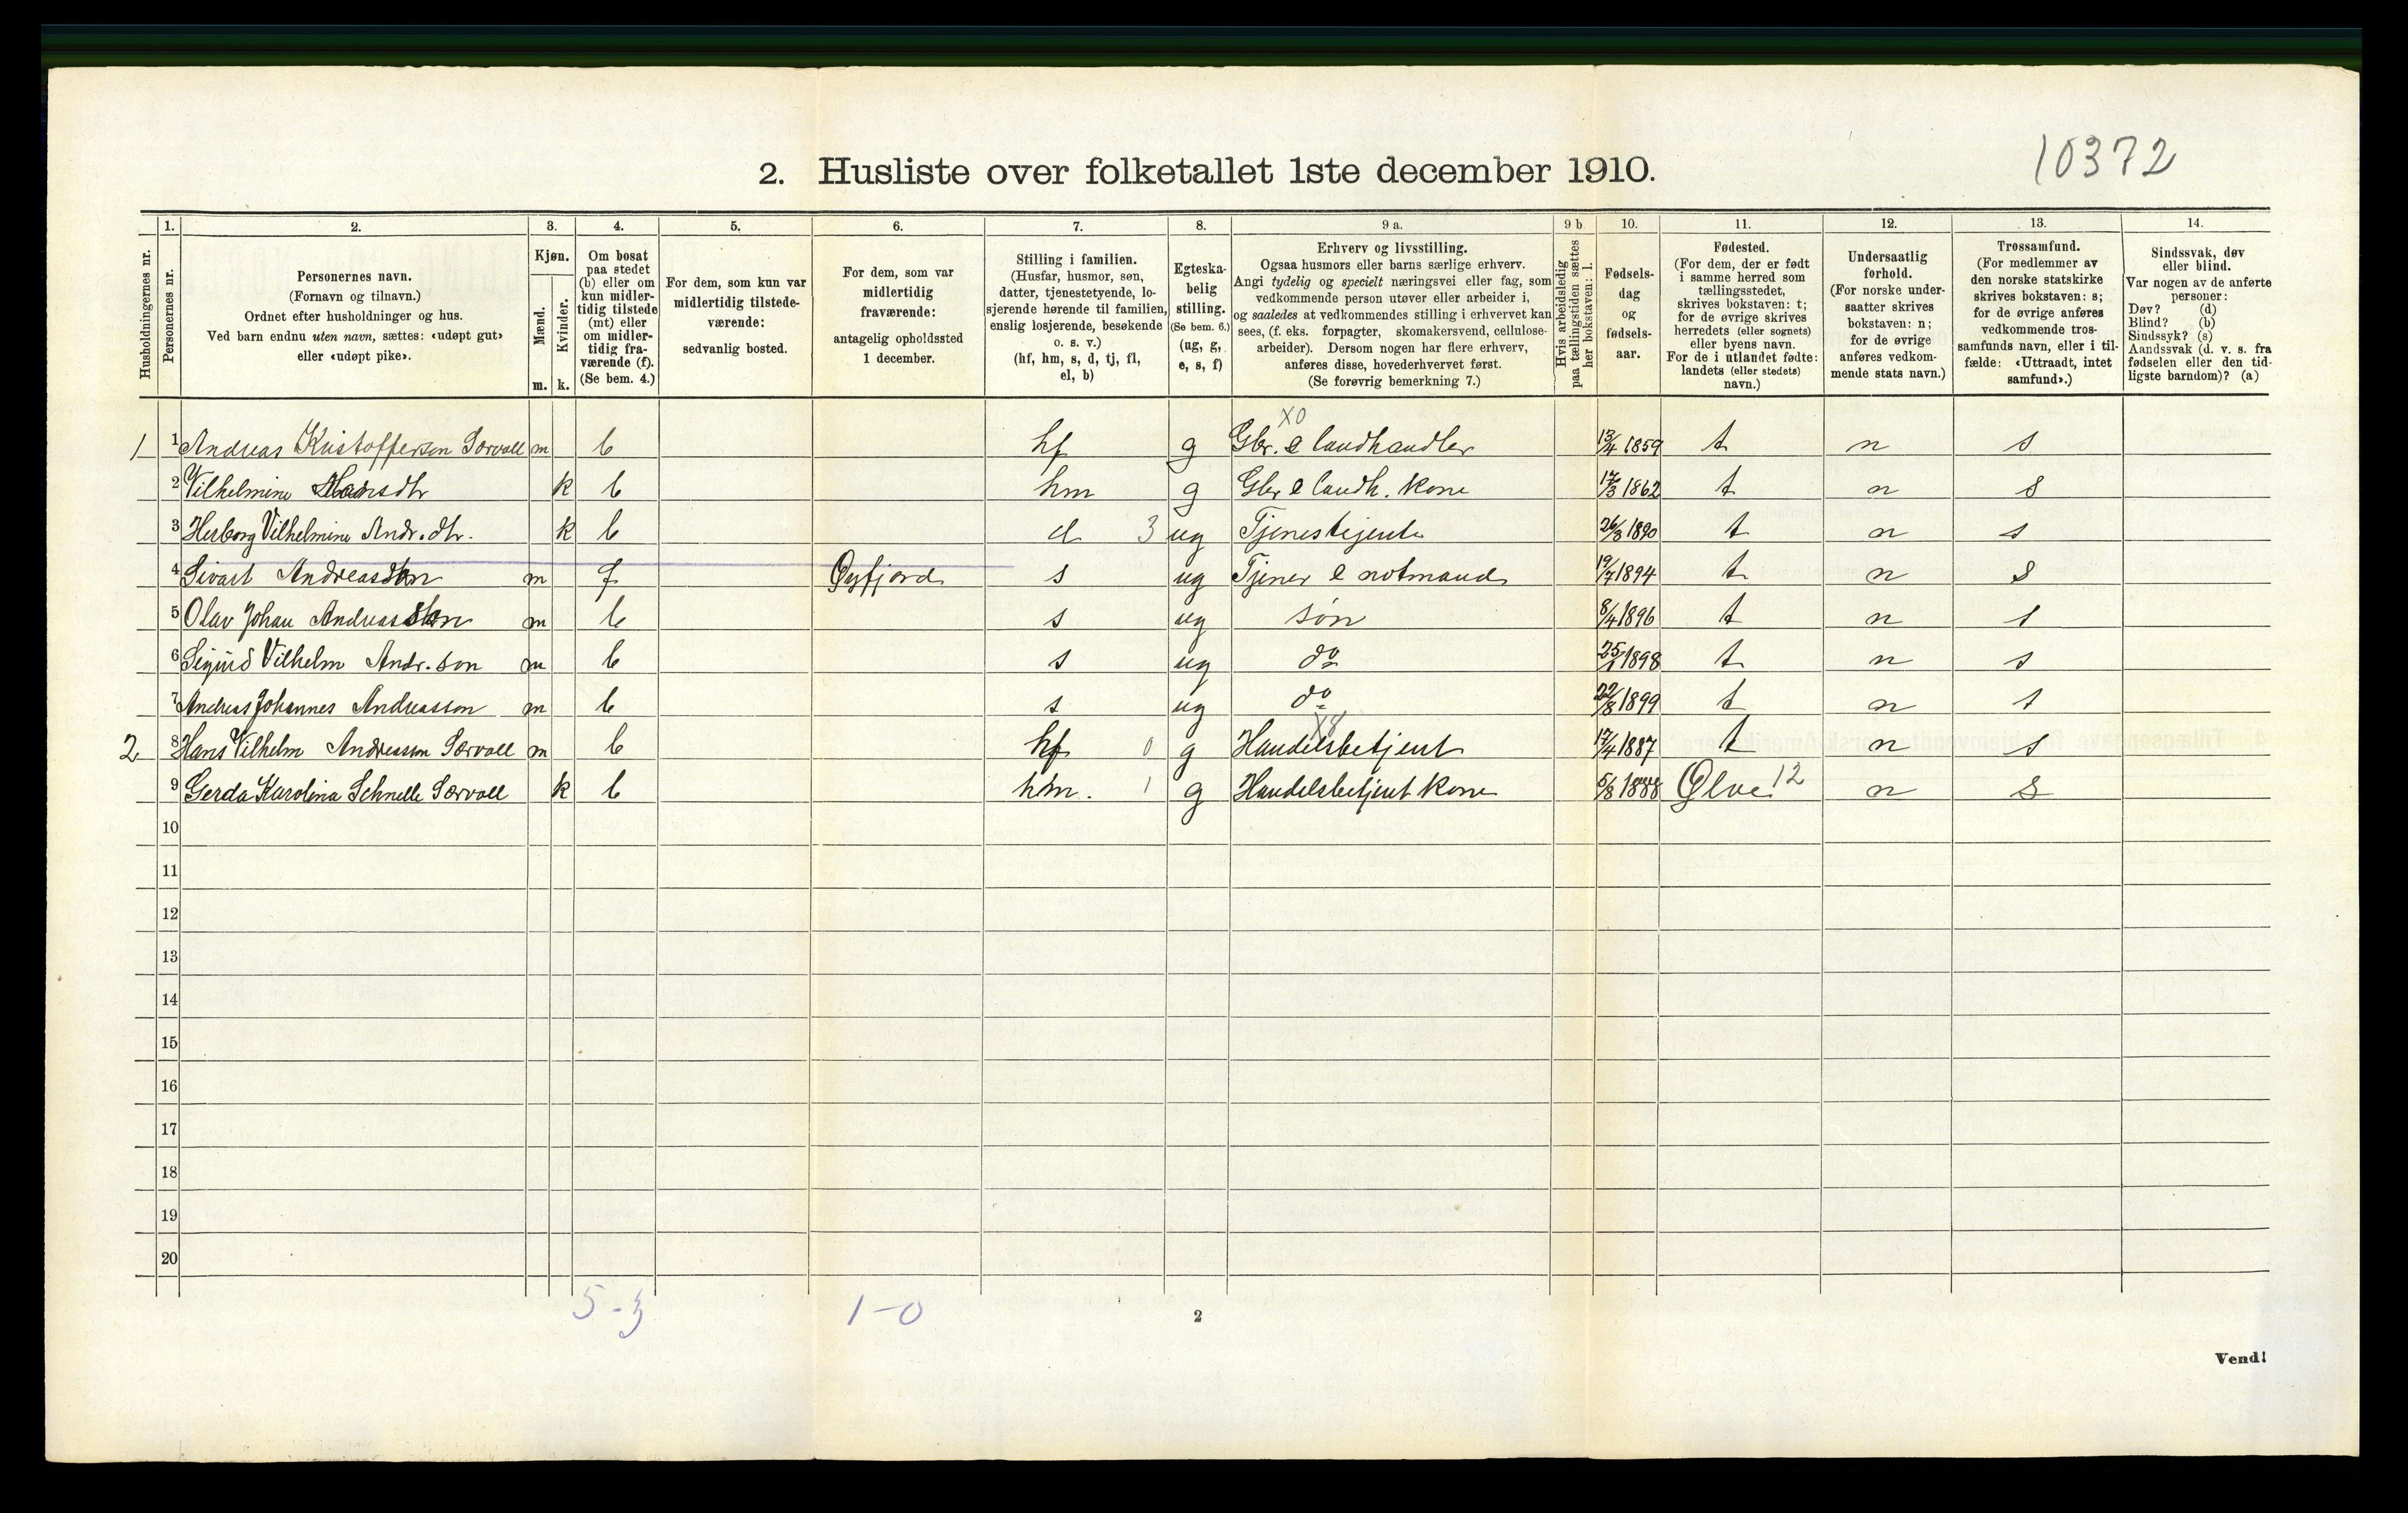 10372
2. Husliste over folketallet 1ste december 1910.
1. 2. 3. 4. 5. 6. 7. 8. 9 a. 9 b 10. 11. 12. 13. 14.
Husholdningernes nr.
Personernes nr.
Personernes navn.
(Fornavn og tilnavn.)
Ordnet efter husholdninger og hus.
Ved barn endnu uten navn, sættes: «udøpt gut»
eller «udøpt pike».
Kjøn.
Mænd.
Kvinder.
m. k.
Om bosat
paa stedet
(b) eller om
kun midler-
tidig tilstede
(mt) eller
om midler-
tidig fra-
værende (f).
(Se bem. 4.)
For dem, som kun var
midlertidig tilstede-
værende:
sedvanlig bosted.
For dem, som var
midlertidig
fraværende:
antagelig opholdssted
1 december.
Stilling i familien.
(Husfar, husmor, søn,
datter, tjenestetyende, lo-
sjerende hørende til familien,
enslig losjerende, besøkende
o. s. v.)
(hf, hm, s, d, tj, fl,
el, b)
Egteska-
belig
stilling.
(Se bem. 6.)
(ug, g,
e, s, f)
Erhverv og livsstilling.
Ogsaa husmors eller barns særlige erhverv.
Angi tydelig og specielt næringsvei eller fag, som
vedkommende person utøver eller arbeider i,
og saaledes at vedkommendes stilling i erhvervet kan
sees, (f. eks. forpagter, skomakersvend, cellulose-
arbeider). Dersom nogen har flere erhverv,
anføres disse, hovederhvervet først.
(Se forøvrig bemerkning 7.)
Hvis arbeidsledig
paa tællingstiden sættes
her bokstaven: l.
Fødsels-
dag
og
fødsels-
aar.
Fødested.
(For dem, der er født
i samme herred som
tællingsstedet,
skrives bokstaven: t;
for de øvrige skrives
herredets (eller sognets)
eller byens navn.
For de i utlandet fødte:
landets (eller stedets)
navn.)
Undersaatlig
forhold.
(For norske under-
saatter skrives
bokstaven: n;
for de øvrige
anføres vedkom-
mende stats navn.)
Trossamfund.
(For medlemmer av
den norske statskirke
skrives bokstaven: s;
for de øvrige anføres
vedkommende tros-
samfunds navn, eller i til-
fælde: «Uttraadt, intet
samfund».)
Sindssvak, døv
eller blind.
Var nogen av de anførte
personer:
Døv? (d)
Blind? (b)
Sindssyk? (s)
Aandssvak (d. v. s. fra
fødselen eller den tid-
ligste barndom)? (a)
X0
1 1 Andreas Kristofferson Sørvoll m b hf g Gbr. & landhandler 13/4 1859 t n s
2 Vilhelmine Hansdtr k b hm g Gbr & landh. kone 17/3 1862 t n s
3 Herborg Vilhelmine Andr.dtr. k b d 3 ug Tjenestejente 26/8 1890 t n s
4 Sivart m f s ug Tjener & notmand 19/7 1894 t n s
5 Olav Johan m b s ug søn 8/4 1896 t n s
6 Sigurd Vilhelm Andr.son m b s ug do 1898 t n s
7 Andreas Johannes Andreasson m b s ug do 22/8 1899 t n s
X8
2 8 Hans Vilhelm Andreasson Sørvoll m b hf 0 g Handelsbetjent 17/4 1887 t n s
9 Gerda Karolina Schnelle Sørvoll k b hm. 1 g Handelsbetjent kone 5/8 1888 12 n s
10
11
12
13
14
15
16
17
18
19
20
5-3 1-0
2
Vend!